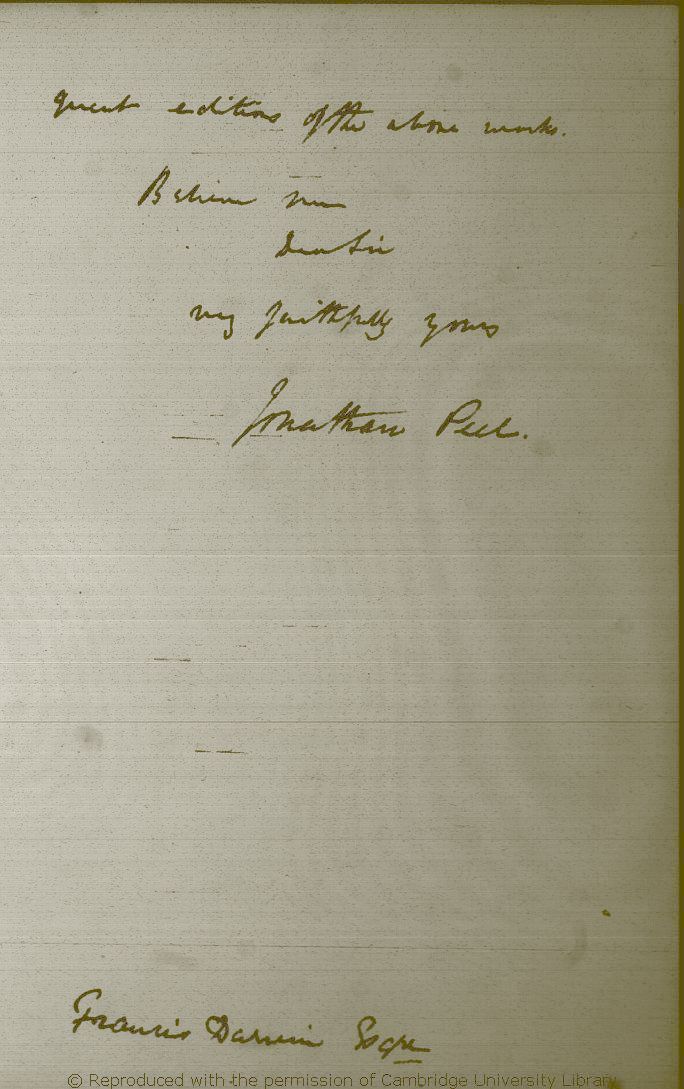 quent editions of the above works.
Believe me
Dear Sir
very faithfully yours
Jonathan Peel.
Francis Darwin Esqre
© Reproduced with the permission of Cambridge University Library